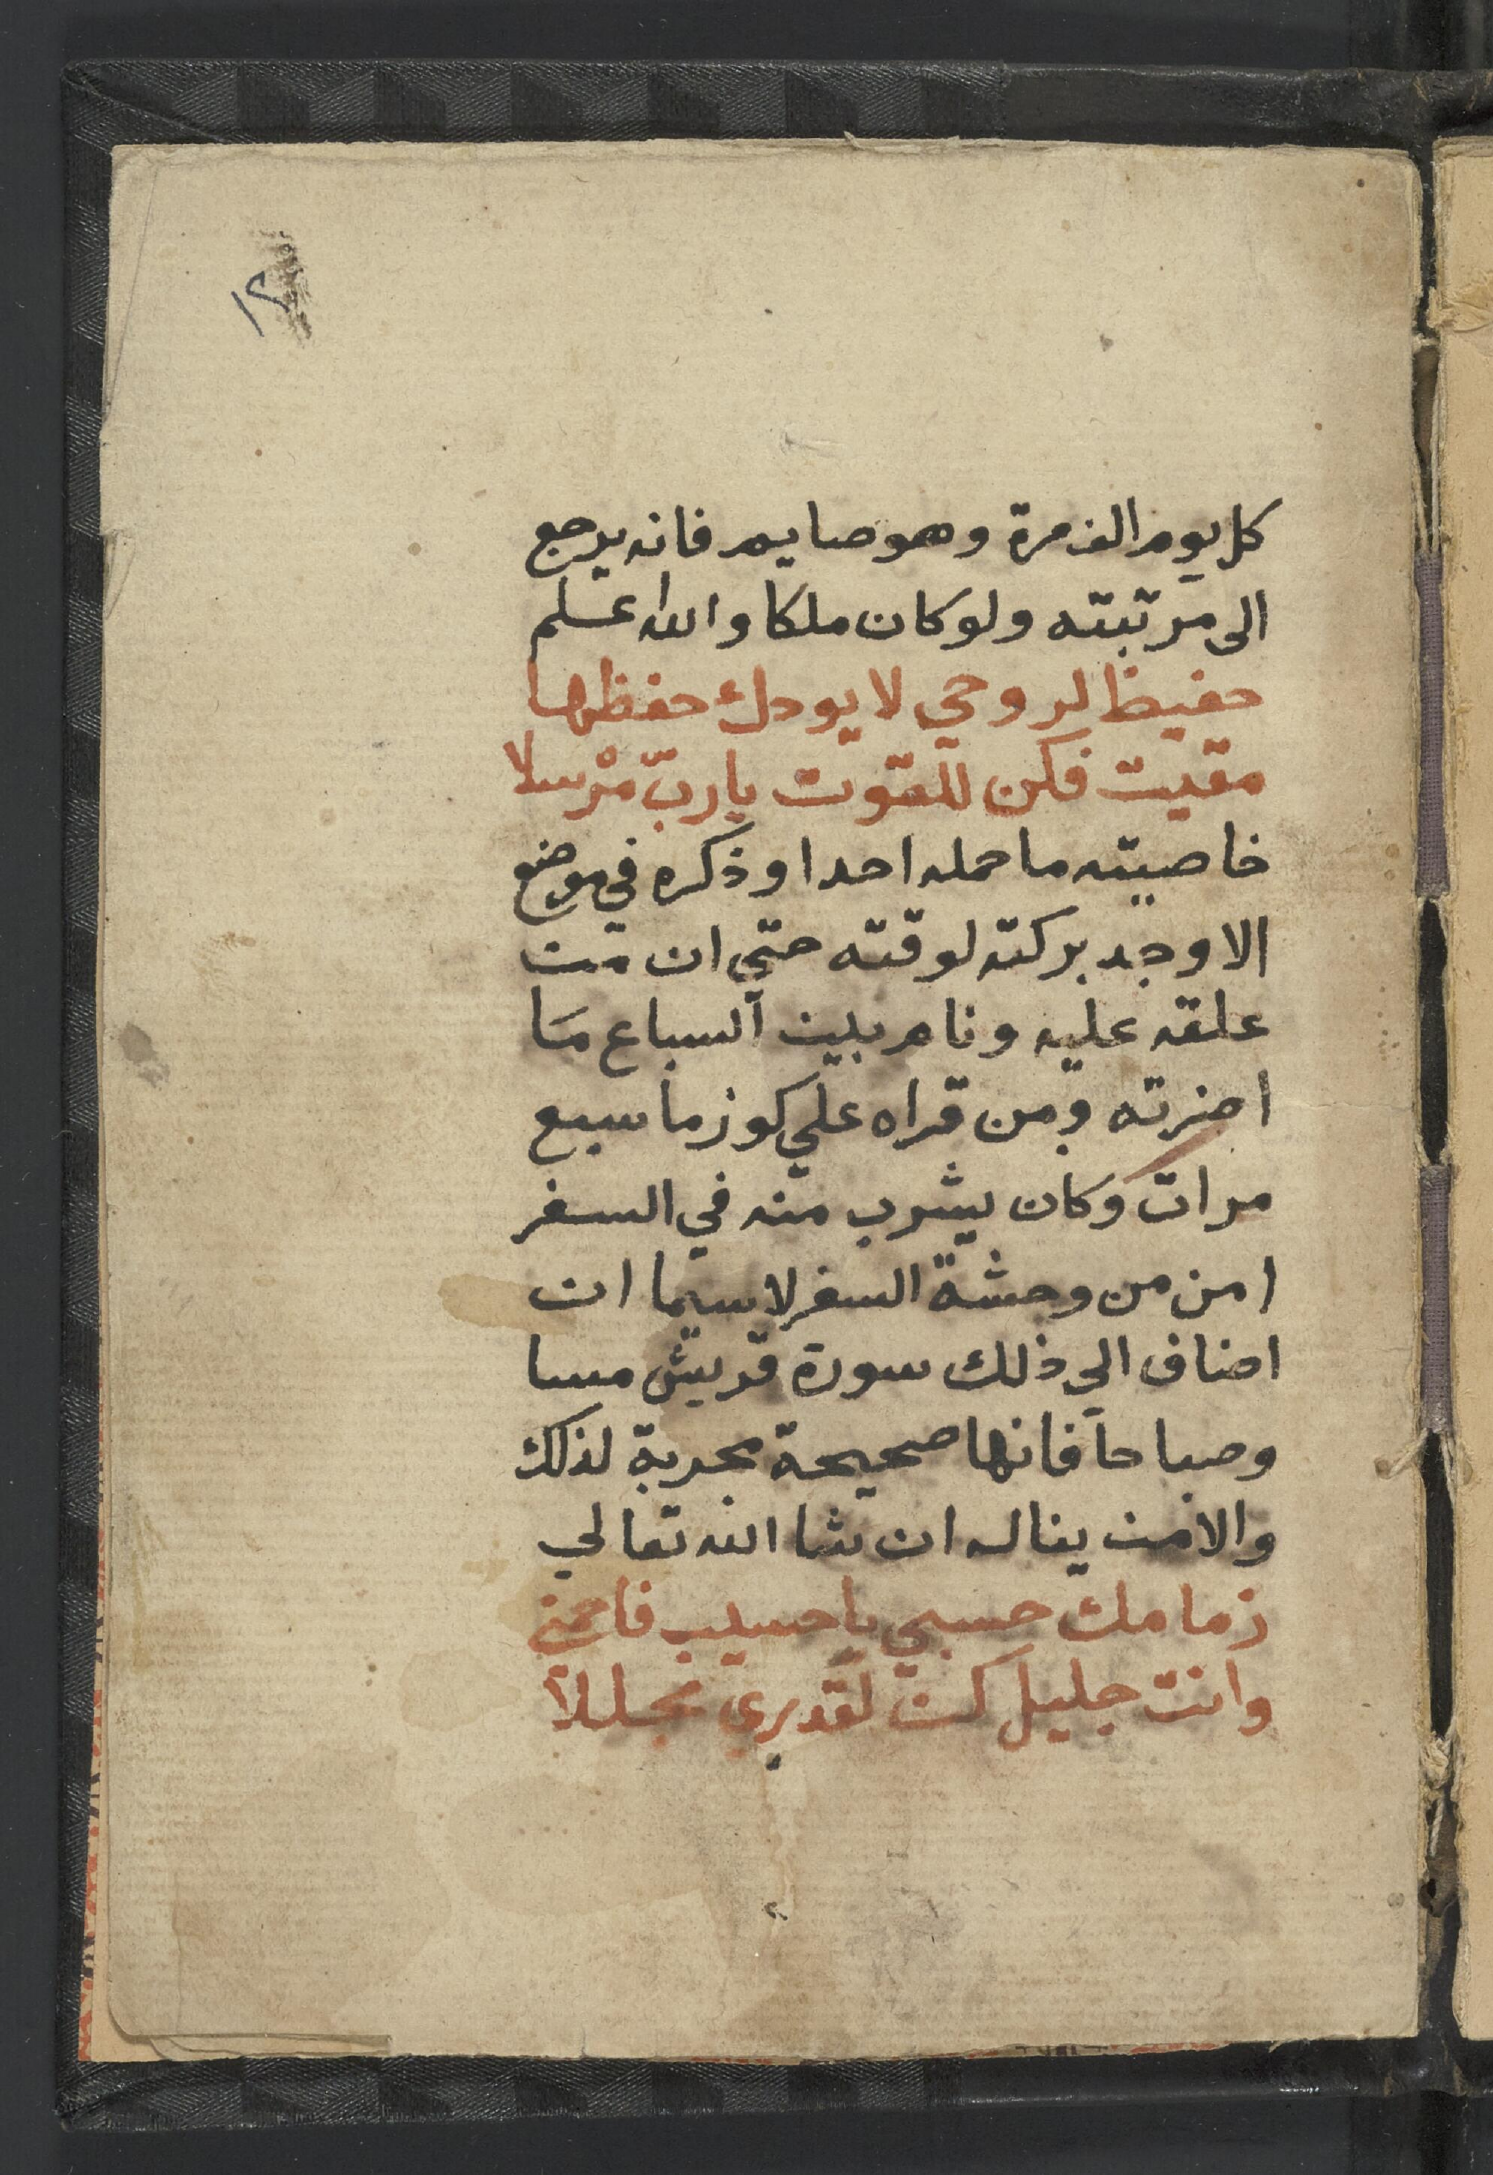 ١٢
كل يوم الف مرة وهو صايم فانه يرجع
الى مرتبته ولو كان ملكا والله اعلم
حفيظ لروحي لا يودك حفظها
مقيت فكن للقوت يا ربّ مرْسلا
خاصيته ما حمله احد او ذكره في موضع
الا وجد بركته لوقته حتي ان من
علقه عليه ونام بين السباع مَا
اضرته ومن قراه علي كوز ما سبع
مرات وكان يشرب منه في السفر
امن من وحشة السفر لاسيما ان
اضاف الي ذلك سورة قريش مسا
وصباحا فانها صحيحة مجربة لذلك
والامن يناله ان شا الله تعالي
زمامك حسبي يا حسيب فاحمني
وانت جليل كن لقدري مجللا